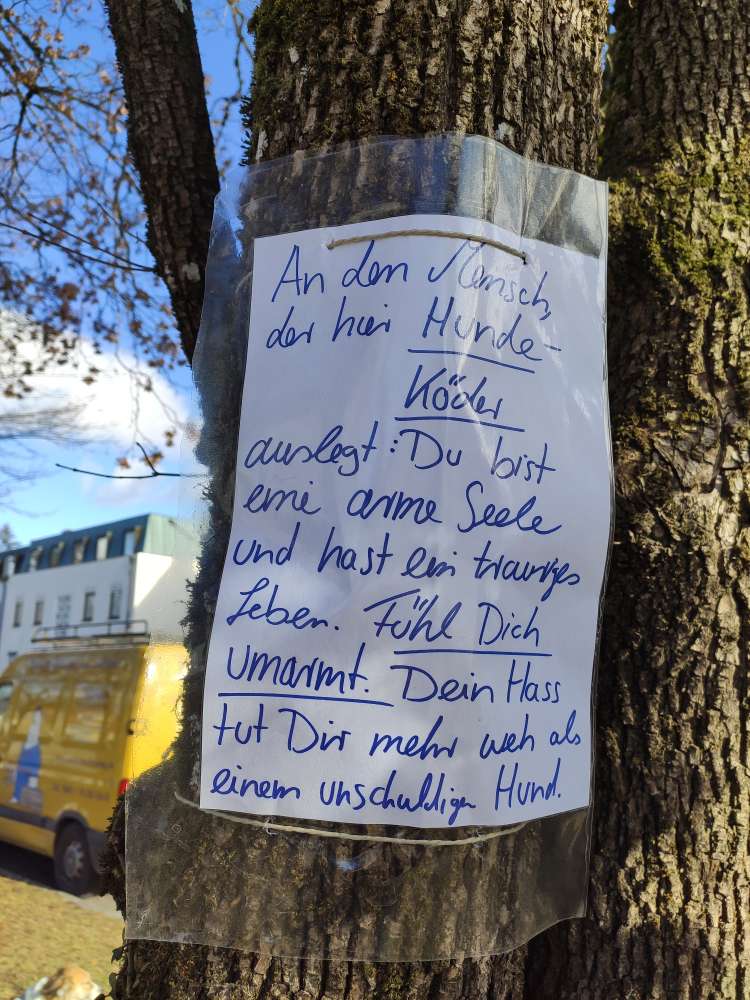 An den Mensch,
der hier Hunde-
Köder
auslegt: Du bist
eine arme Seele
und hast ein trauriges
Leben. Fühl Dich
umarmt. Dein Hass
tut Dir mehr weh als
einem unschuldigen Hund.